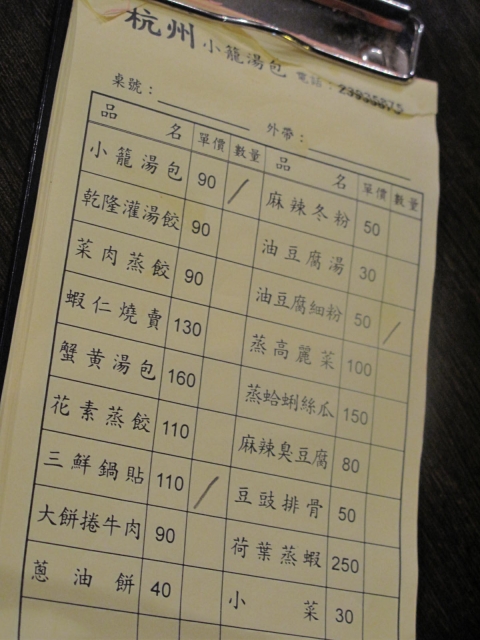 杭州小籠湯包 電話：23933875
桌號： 外帶：
品名 單價 數量 品名 單價 數量
小籠湯包 90 / 麻辣冬粉 50
乾隆灌湯餃 90 油豆腐湯 30
菜肉蒸餃 90 油豆腐細粉 50 /
蝦仁燒賣 130 蒸高麗菜 100
蟹黃湯包 160 蒸蛤蜊絲瓜 150
花素蒸餃 110 麻辣臭豆腐 80
三鮮鍋貼 110 / 豆豉排骨 50
大餅捲牛肉 90 荷葉蒸蝦 250
蔥油餅 40 小菜 30